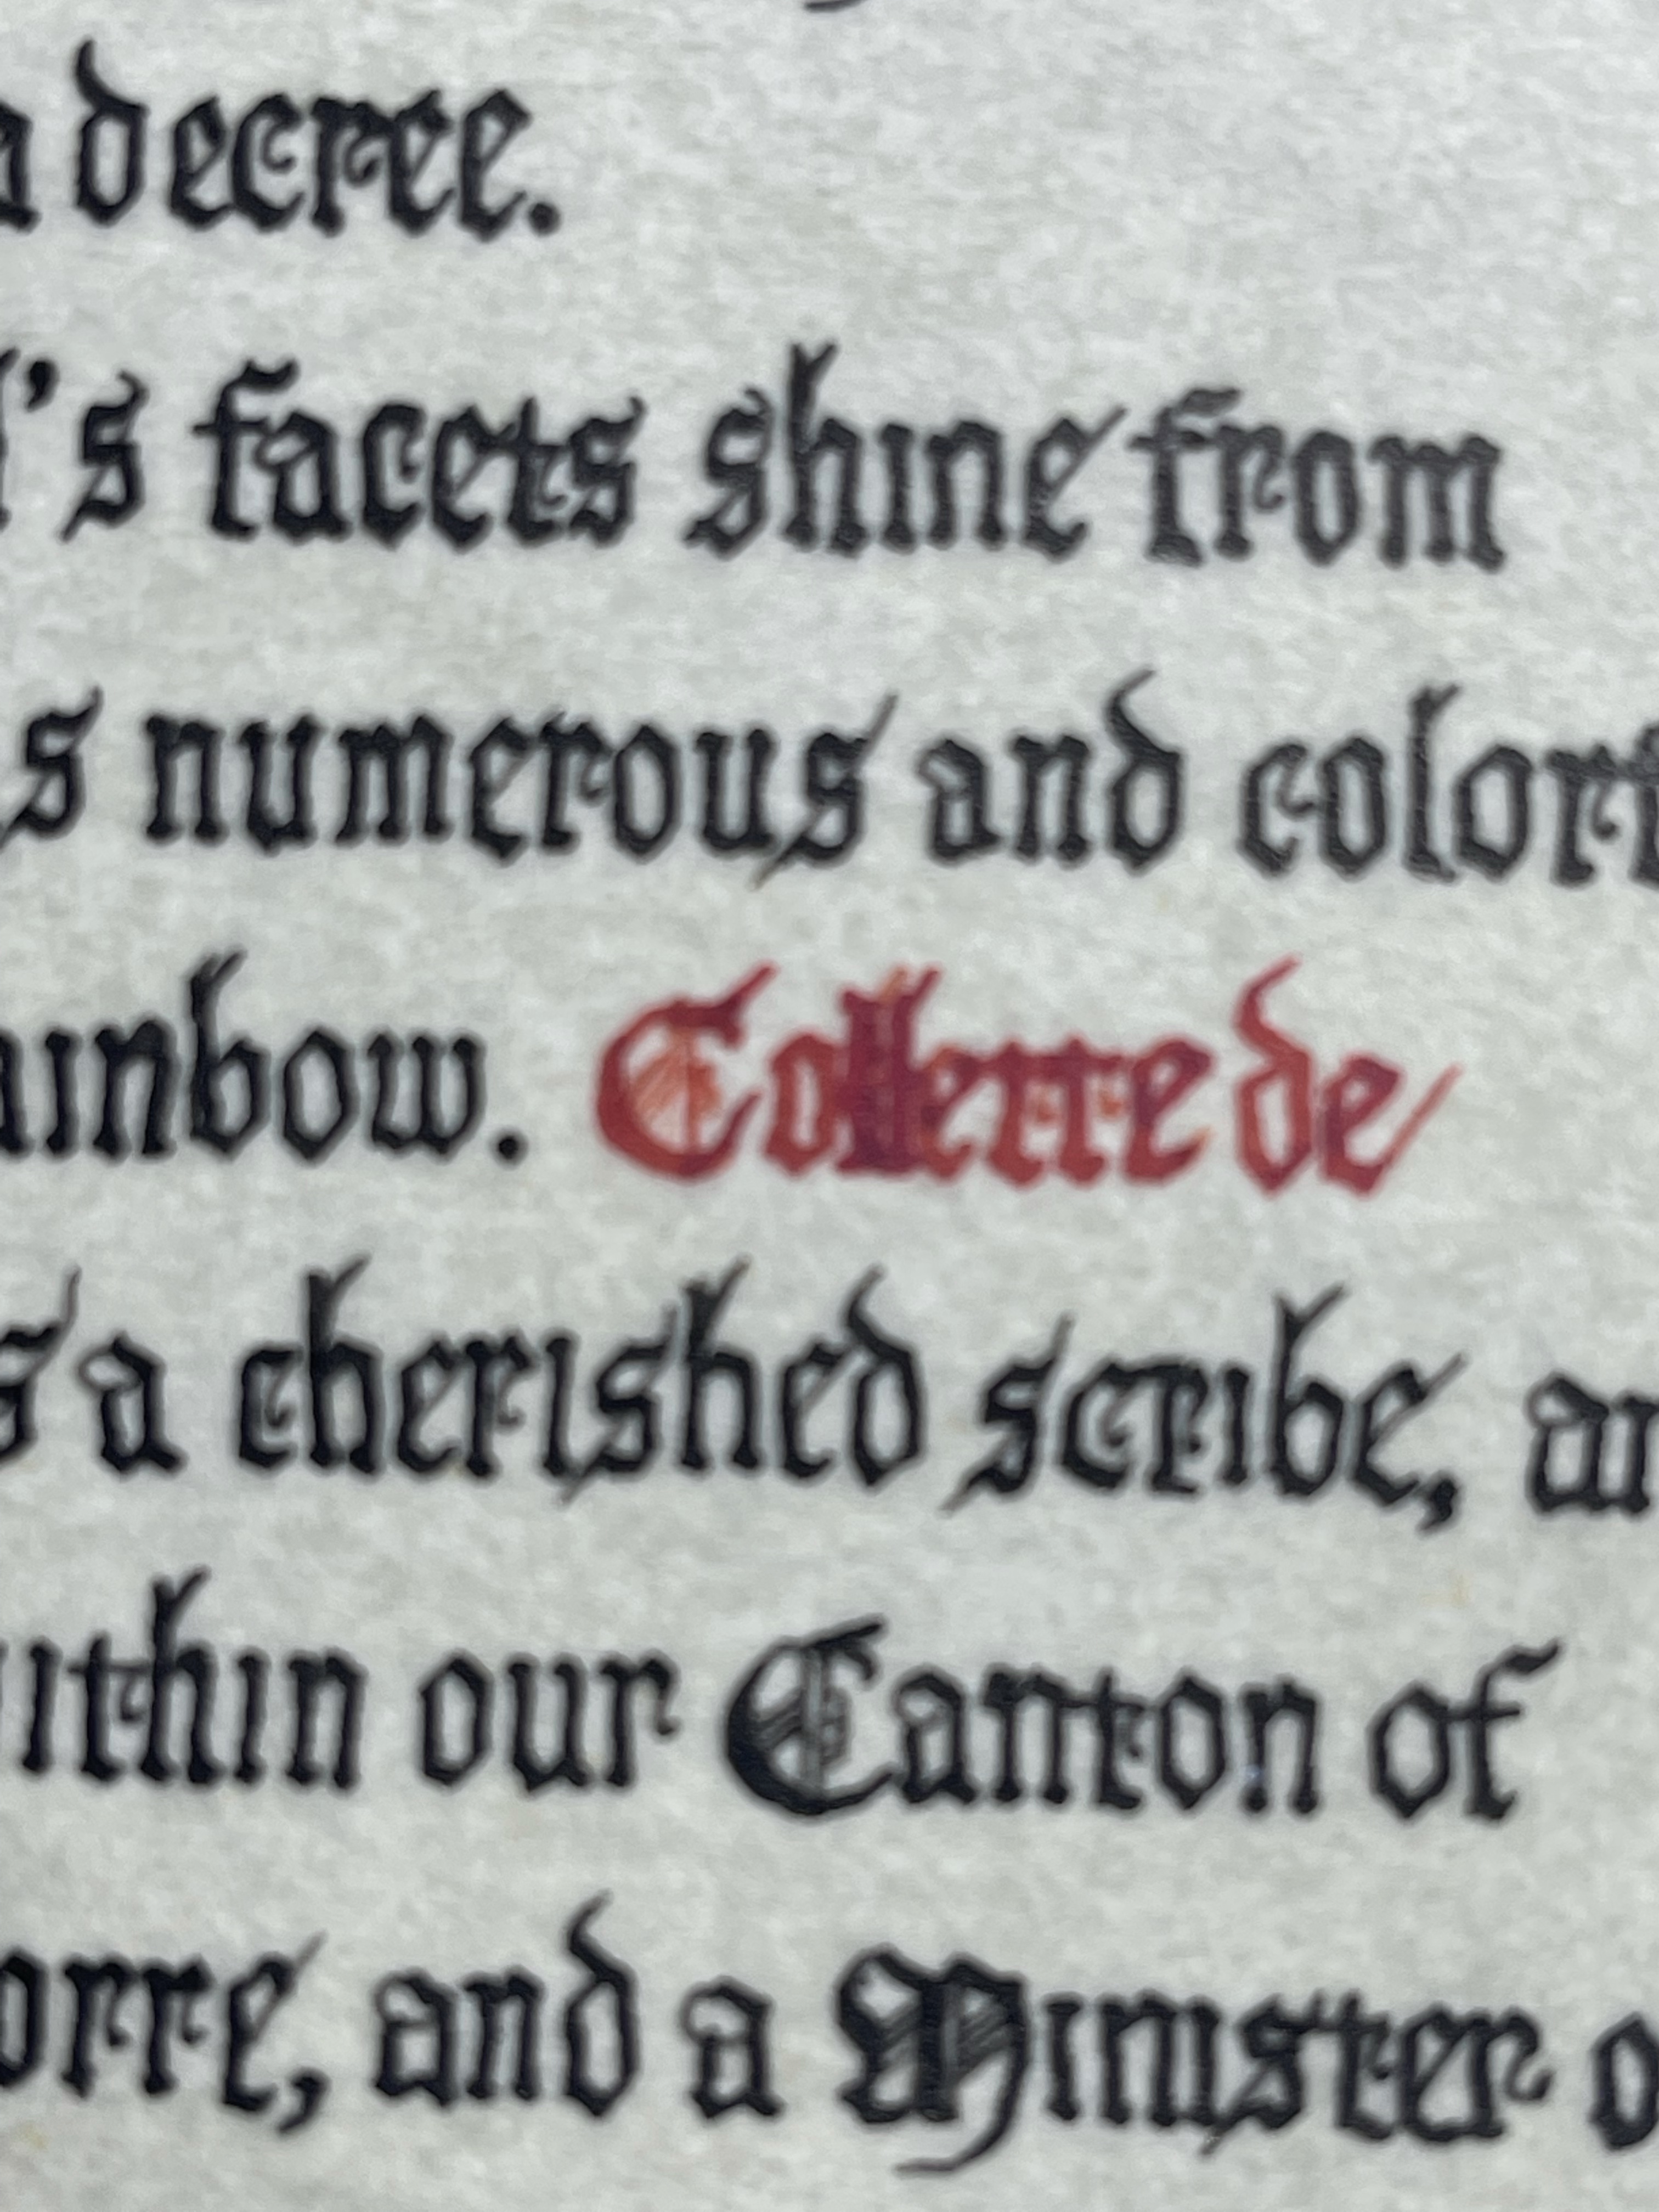 a decree.
's facets shine from
s numerous and colorf
ainbow. Collette de
s a cherished scribe, an
ithin our Canton of
orre, and a Minister o